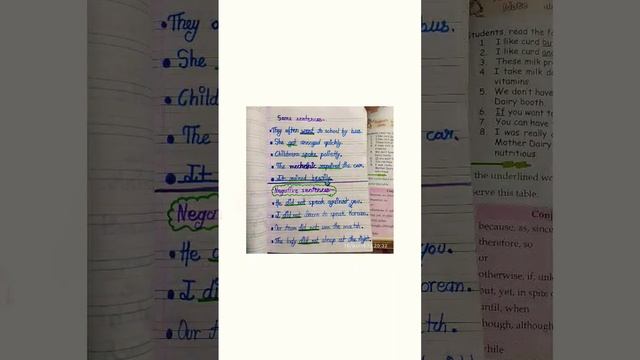 Some sentences-
• They often went to school by bus.
• She got annoyed quickly.
• Childrens spoke politely.
• The mechanic repaired the car.
• It rained heavily.
Negative sentences-
• He did not speak against you.
• I did not learn to speak Korean.
• Our team did not win the match.
• The baby did not sleep at the night.
Students, read the fo
1. I like curd bu
2. I like curd and
3. These milk pr
4. I take milk da
vitamins.
5. We don't have
Dairy booth.
6. If you want to
7. You can have
8. I was really
Mother Dairy
nutritious
the underlined wo
serve this table.
Conj
because, as, since
therefore, so
or
otherwise, if, unle
but, yet, in spite o
until, when
though, although
while